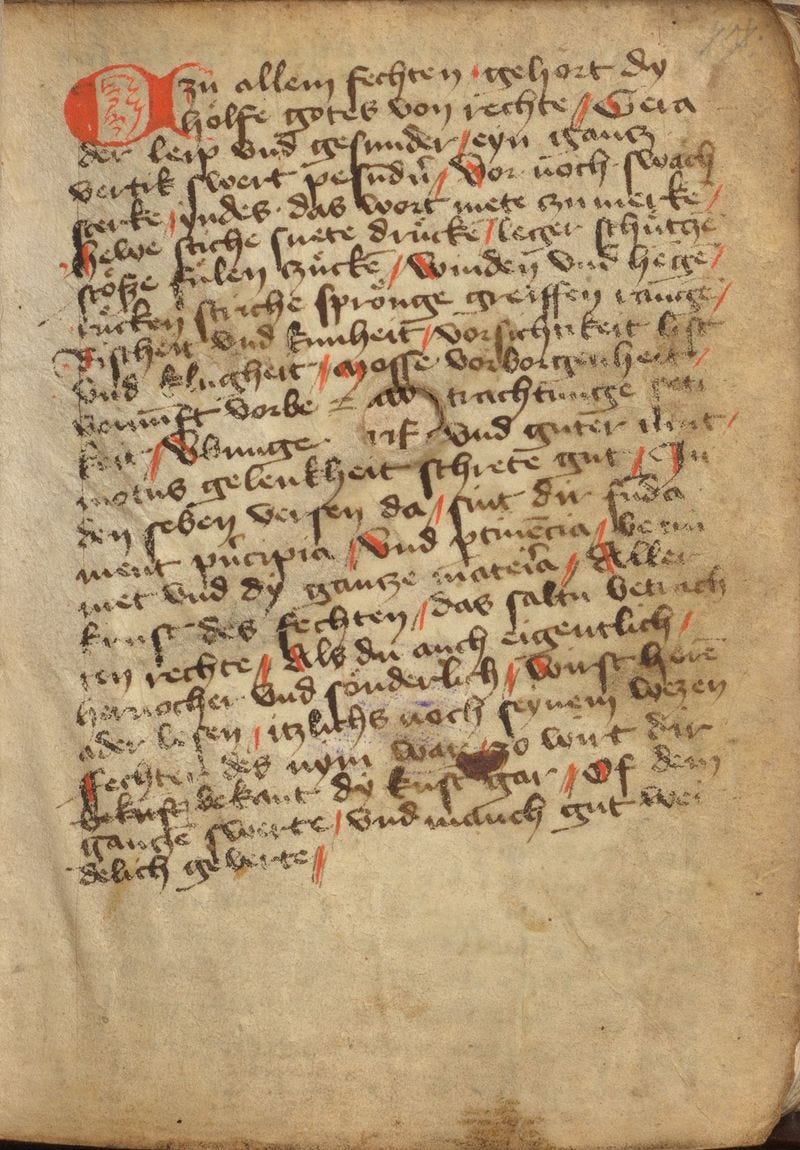 Czu allem fechten / gehort dy
hölfe gotes von rechte // Gera
der leip vnd gesunder / eyn gantz
vertik swert pesundn̄ // Vor noch swach
sterke / yndes das wort mete czu merkē /
Hewe stiche snete drückē / leger schützē
stöße fülen czückē // Winden vnd hēgē /
rücken striche spröngē greiffen rangē /
Rischeit vnd kunheit / vorsichtikeit list
vnd klugheit / mosse vorborgenheit /
vernūft vorbe = trachtunge feti
keit / Vbunge vnd guter mut /
motus gelenkheit schretē gut / In
den seben versen da / sint dir fūda
ment pn̄cipia / Vnd ptinēcia / benu
met vnd dy gantze mateīa // Aller
kunst des fechten / das saltu betrach
ten rechte // Als du auch eigentlich /
hernocher vnd sönderlich / Wirst hörē
ader lesen / itzlichs noch seynem wezen
Fechter des nym war / zo wirt dir
bekant dy kūst gar // Of dem
gantzē swerte / vnd manch gut wei
delich geverte //